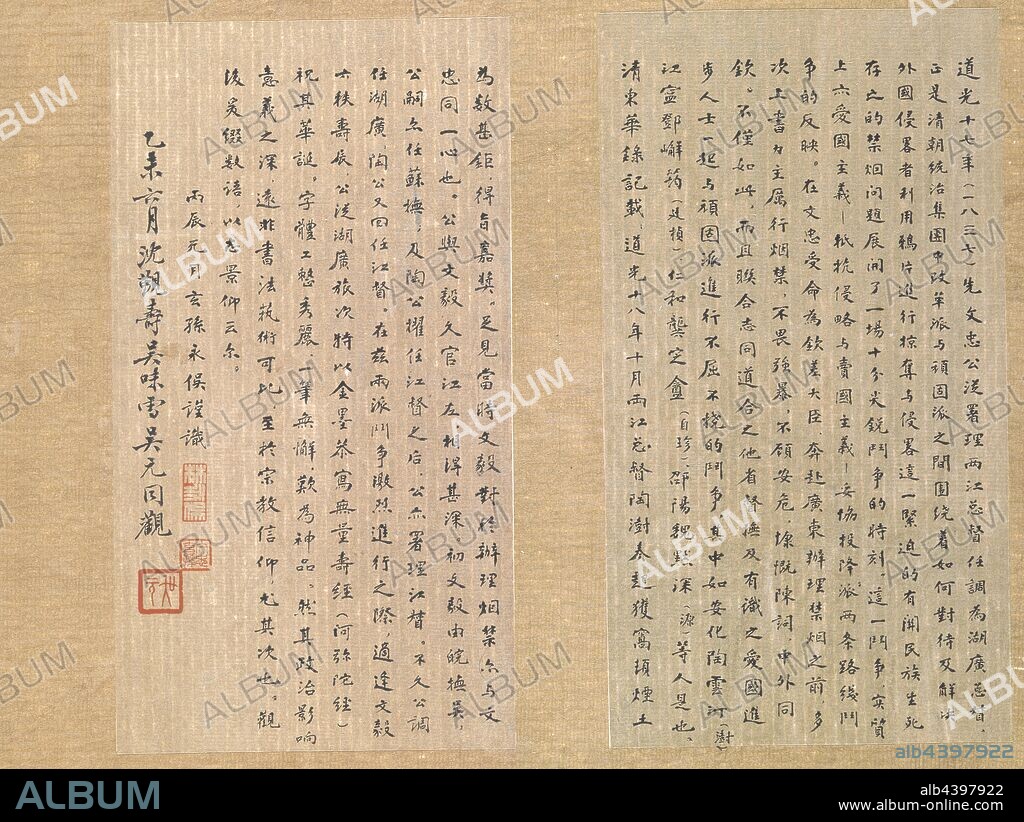 道光十七年(一八三七)先文忠公從署理两江总督任調為湖廣总督,
正是清朝統治集團中改革派与頑固派之間围绕着如何對待及解决
外國侵畧者利用鴉片進行掠奪与侵畧這一緊迫的有關民族生死
存亡的禁烟问题展開了一場十分尖銳鬥争的時刻。這一鬥争,实質
上六爱國主義—抵抗侵略与賣國主義—妥协投降派两条路线鬥
争的反映。在文忠受命為欽差大臣奔赴廣東辦理禁烟之前,多
次上書力主厲行烟禁,不畏強暴,不顧安危,慷慨陳詞,中外同
欽。不僅如此,而且联合志同道合之他省督撫及有識之爱國進
步人士一起与頑固派進行不屈不撓的鬥争,其中如安化陶雲汀(澍)
江寍鄧嶰筠(廷楨)仁和龔定盦(自珍)邵陽魏默深(源)等人是也。
清東華錄記載,道光十八年十月两江总督陶澍奏起獲窩頓煙土
為数甚鉅,得旨嘉奬。足見當時文毅對於辦理烟禁亦与文
忠同一心也。公與文毅久官江左,相得甚深,初文毅由皖撫吴,
公嗣亦任蘇撫,及陶公擢任江督之后,公亦署理江督。不久公調
任湖廣,陶公又回任江督。在兹两派鬥争激烈進行之際,適逢文毅
六秩壽辰,公從湖廣旅次特以金墨恭寫無量壽經(阿弥陀經)
祝其華誕。字體工整秀麗,一筆無懈,歎為神品。然其政治影响
意義之深遠非書法執術可比,至於宗教信仰尤其次也。觀
後爰缀数語,以志景仰云尔。
丙辰元月玄孫永俁謹識
乙未六月沈觀壽吴味雪吴元同觀
ALBUM
alb4397922
ALBUM
alb4397922
www.album-online.com